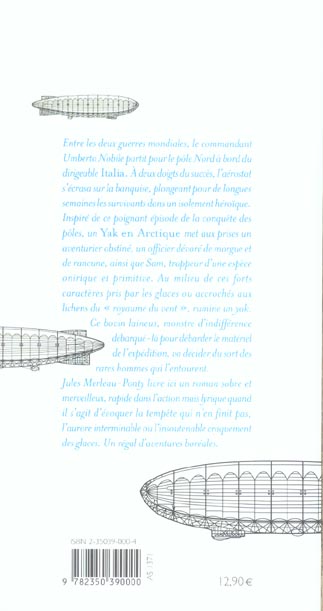 Entre les deux guerres mondiales, le commandant
Umberto Nobile partit pour le pôle Nord à bord du
dirigeable Italia. À deux doigts du succès, l'aérostat
s'écrasa sur la banquise, plongeant pour de longues
semaines les survivants dans un isolement héroïque.
Inspiré de ce poignant épisode de la conquête des
pôles, un Yak en Arctique met aux prises un
aventurier obstiné, un officier dévoré de morgue et
de rancune, ainsi que Sam, trappeur d'une espèce
onirique et primitive. Au milieu de ces forts
caractères pris par les glaces ou accrochés aux
lichens du « royaume du vent », rumine un yak.
Ce bovin laineux, monstre d'indifférence
débarqué-là pour débarder le matériel
de l'expédition, va décider du sort des
rares hommes qui l'entourent.
Jules Merleau-Ponty livre ici un roman sobre et
merveilleux, rapide dans l'action mais lyrique quand
il s'agit d'évoquer la tempête qui n'en finit pas,
l'aurore interminable ou l'insoutenable craquement
des glaces. Un régal d'aventures boréales.
ISBN 2-35039-000-4
9 782350 390000
12,90 €